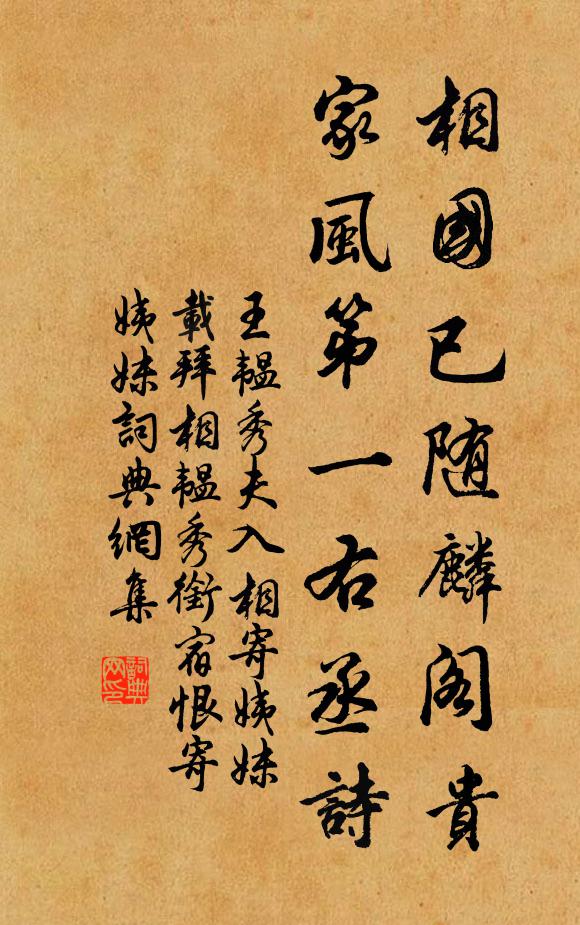 相國已随麟阁貴
家風第一右丞詩
王韞秀夫入相寄姨妹
載拜相韞秀銜宿恨寄
姨妹詞典網集
詞典
网印